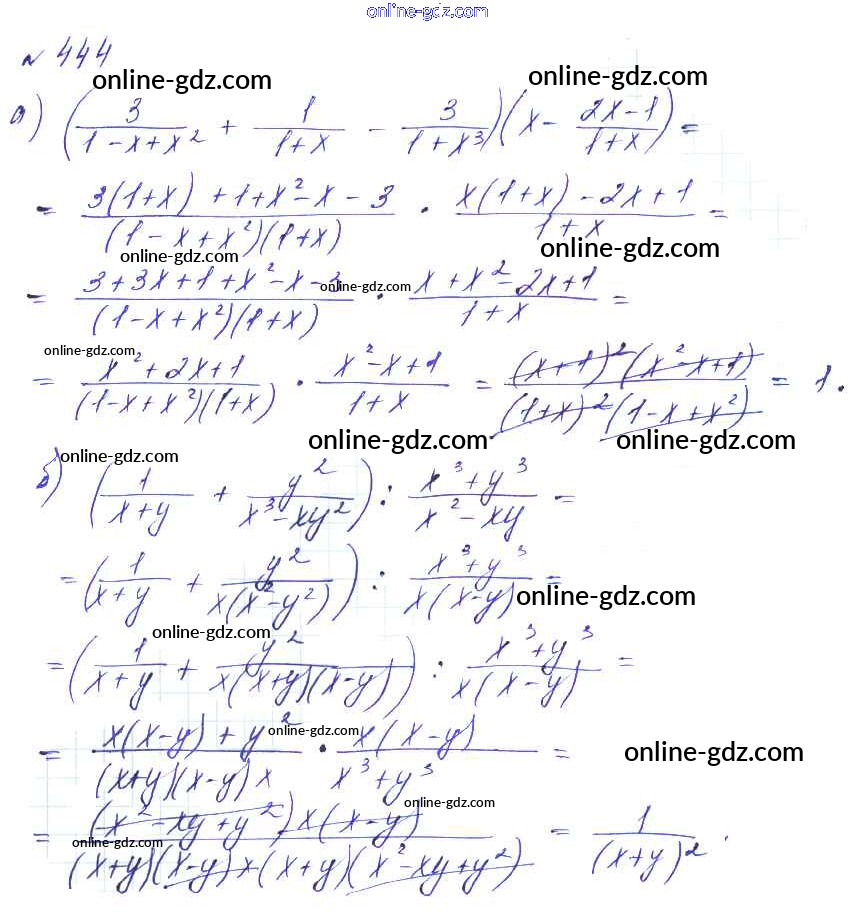 online-gdz.com
№ 444
online-gdz.com online-gdz.com
а) (3/(1-x+x²) + 1/(1+x) - 3/(1+x³))(x - (2x-1)/(1+x)) =
= (3(1+x)+1+x²-x-3)/((1-x+x²)(1+x)) · (x(1+x)-2x+1)/(1+x) =
online-gdz.com online-gdz.com
= (3+3x+1+x²-x-3)/((1-x+x²)(1+x)) · (x+x²-2x+1)/(1+x) =
online-gdz.com
online-gdz.com
= (x²+2x+1)/((1-x+x²)(1+x)) · (x²-x+1)/(1+x) = ((x+1)²(x²-x+1))/((1+x)²(1-x+x²)) = 1.
online-gdz.com online-gdz.com online-gdz.com
б) (1/(x+y) + y²/(x³-xy²)) : (x³+y³)/(x²-xy) =
= (1/(x+y) + y²/(x(x²-y²))) : (x³+y³)/(x(x-y)) =
online-gdz.com
online-gdz.com
= (1/(x+y) + y²/(x(x+y)(x-y))) : (x³+y³)/(x(x-y)) =
online-gdz.com
= (x(x-y)+y²)/((x+y)(x-y)x) · (x(x-y))/(x³+y³) =
online-gdz.com
online-gdz.com
= ((x²-xy+y²)x(x-y))/((x+y)(x-y)x(x+y)(x²-xy+y²)) = 1/(x+y)².
online-gdz.com